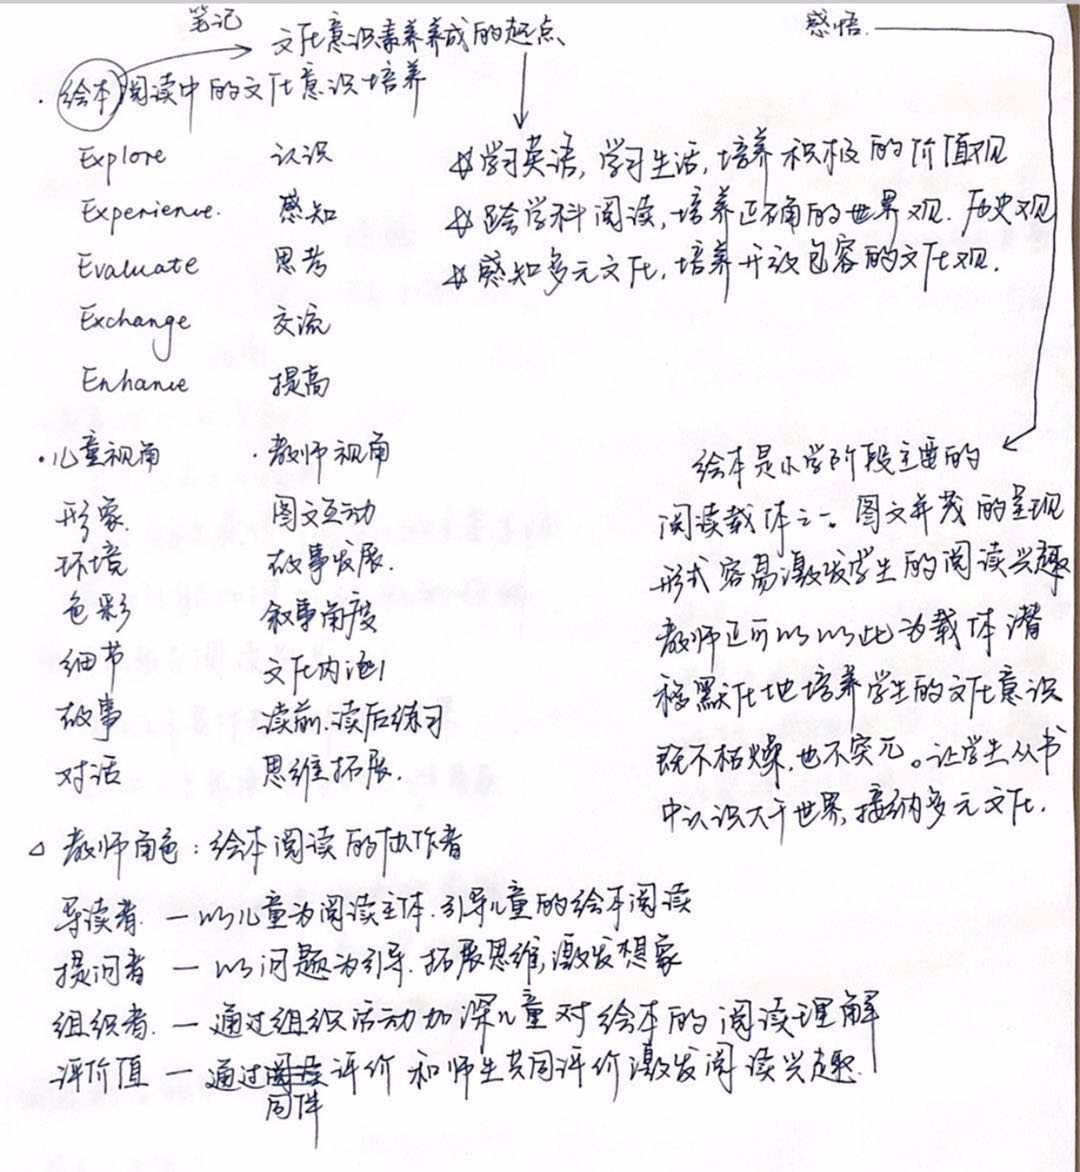 笔记
文化意识素养养成的起点
感悟
·绘本阅读中的文化意识培养
Explore 认识
Experience. 感知
Evaluate 思考
Exchange 交流
Enhance 提高
学习英语,学习生活,培养积极的价值观
跨学科阅读,培养正确的世界观.历史观
感知多元文化,培养开放包容的文化观.
·儿童视角 ·教师视角
形象. 图文互动
环境 故事发展.
色彩 叙事角度
细节 文化内涵
故事 读前、读后练习
对话 思维拓展.
绘本是小学阶段主要的
阅读载体之一。图文并茂的呈现
形式容易激发学生的阅读兴趣
教师还可以以此为载体潜
移默化地培养学生的文化意识
既不枯燥,也不突兀。让学生从书
中认识大千世界,接纳多元文化.
△ 教师角色:绘本阅读的协作者
导读者. — 以儿童为阅读主体.引导儿童的绘本阅读
提问者 — 以问题为引导.拓展思维,激发想象
组织者. — 通过组织活动加深儿童对绘本的阅读理解
评价值 — 通过同伴评价和师生共同评价激发阅读兴趣.